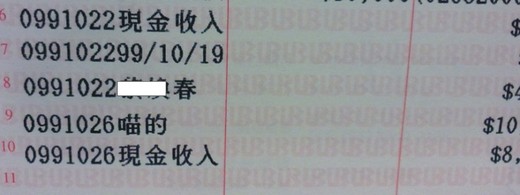 6 0991022現金收入 $
7 099102299/10/19
8 0991022 春 $4
9 0991026喵的 $10
10 0991026現金收入 $8,
11